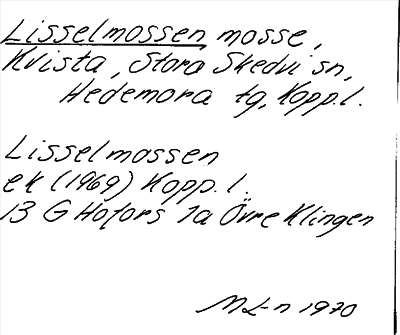 Lisselmossen mosse,
Kvista, Stora Skedvi sn,
Hedemora tg, Kopp.l.
Lisselmossen
ek (1969) Kopp.l.
13 G Hofors 1a Övre Klingen
M L-n 1970